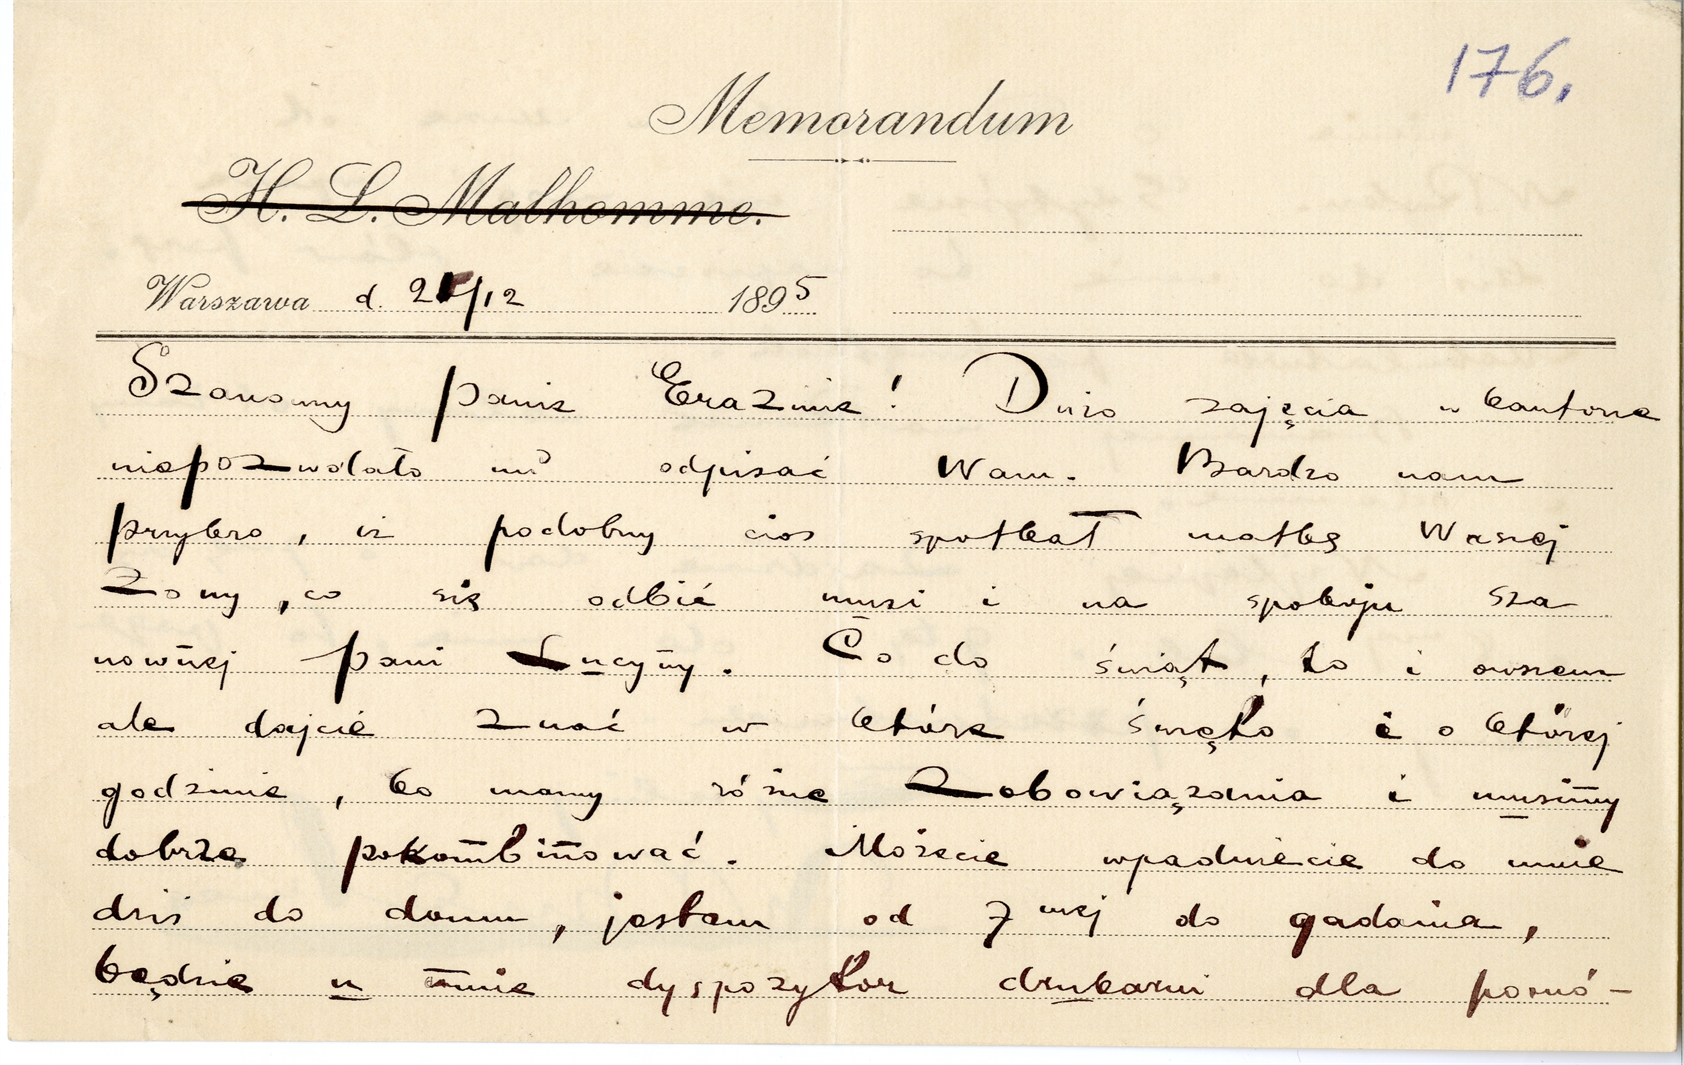 176.
Memorandum
H. L. Malhomme.
Warszawa d. 21/12 1895
Szanowny panie Erazmie! Dużo zajęcia w kantorze
niepozwolało mi odpisać Wam. Bardzo nam
przykro, iż podobny cios spotkał matkę Waszej
Żony, co się odbić musi i na spokoju sza
nownej pani Lucyny. Co do świąt, to i owszem
ale dajcie znać w które święto i o której
godzinie, bo mamy różne zobowiązania i musimy
dobrze pokombinować. Możecie wpadniecie do mnie
dziś do domu, jestem od 7mej do gadania,
będzie u mnie dyspozytor drukarni dla pomó-